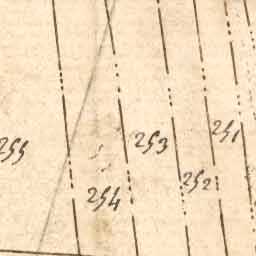 255
254
253
252
251